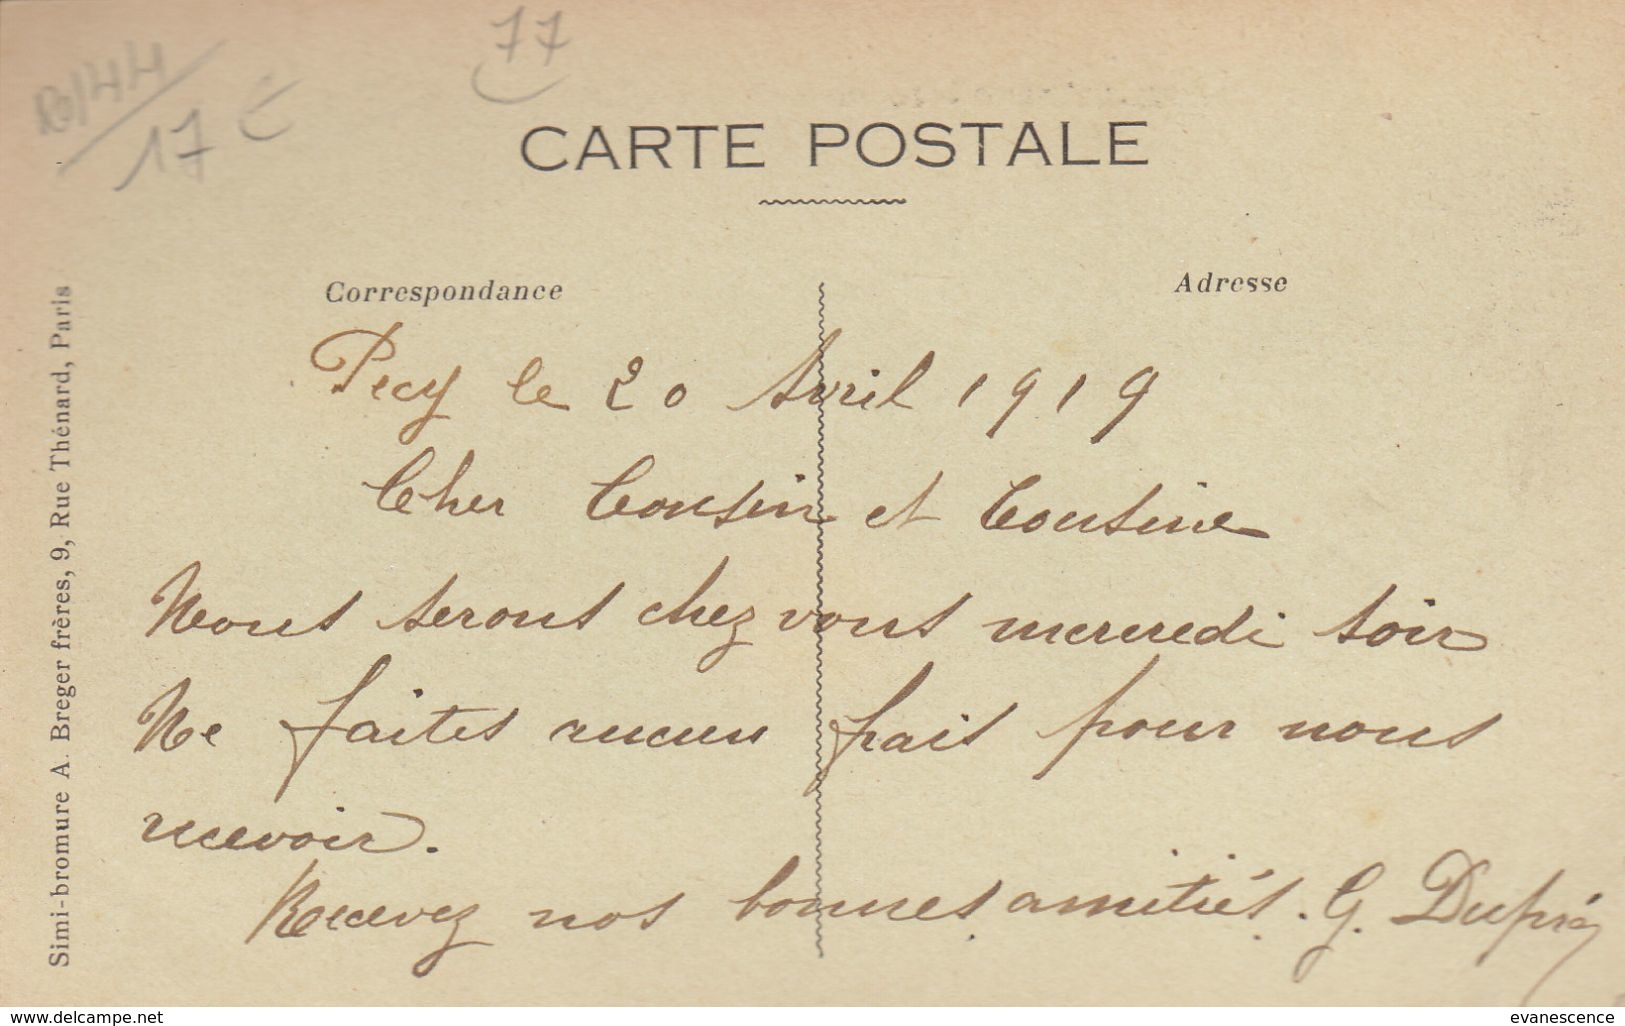 77
17 €
CARTE POSTALE
Correspondance
Adresse
Pecy le 20 Avril 1919
Cher Cousin et Cousine
Nous serons chez vous mercredi soir
Ne faites aucun frais pour nous
recevoir.
Recevez nos bonnes amitiés. G. Dupré
Simi-bromure A. Breger frères, 9, Rue Thénard, Paris
www.delcampe.net
evanescence